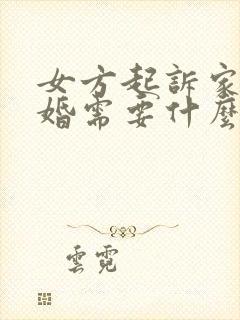 女方起訴家
婚需要什麼
雲霓